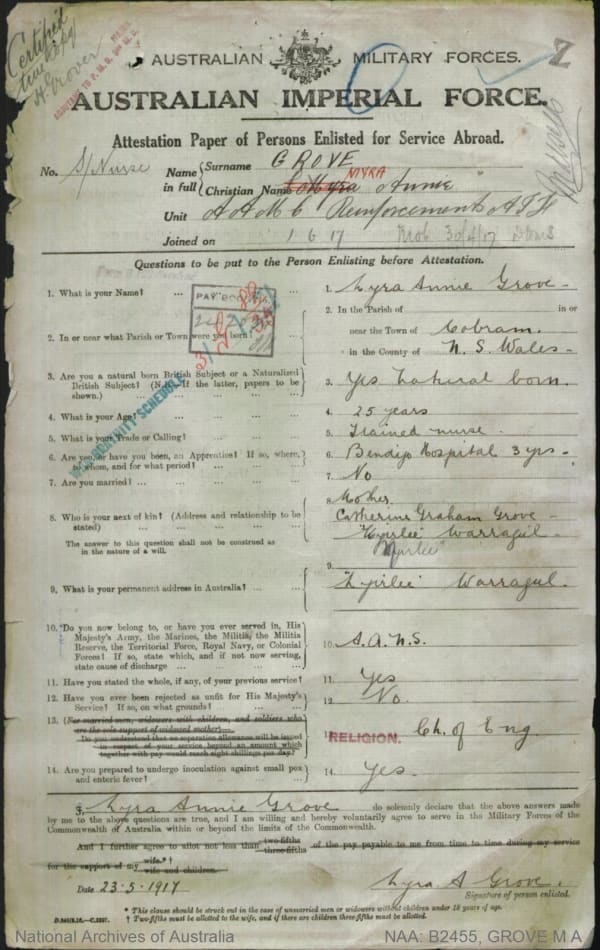 Certified
true copy
H. Grover
AUSTRALIAN MILITARY FORCES.
AUSTRALIAN IMPERIAL FORCE.
Attestation Paper of Persons Enlisted for Service Abroad.
No. S/Nurse
Name in full { Surname GROVE
Christian Name Myra MYRA Annie
Unit A A M C Reinforcements A I F
Joined on 1 6 17 Mob 30/4/17
Questions to be put to the Person Enlisting before Attestation.
1. What is your Name? ... 1. Myra Annie Grove -
PAY BOOK
2. In or near what Parish or Town were you born? ... 2. In the Parish of in or
near the Town of Cobram.
in the County of N. S. Wales -
3. Are you a natural born British Subject or a Naturalized
British Subject? (N.B. If the latter, papers to be
shown.) ... 3. Yes Natural born.
4. What is your Age? ... 4. 25 years
5. What is your Trade or Calling? ... 5. Trained nurse.
6. Are you, or have you been, an Apprentice? If so, where,
to whom, and for what period? ... 6. Bendigo Hospital 3 yrs -
7. Are you married? ... 7. No
8. Who is your next of kin? (Address and relationship to be
stated) ... 8. Mother.
Catherine Graham Grove -
"Myrlie" Warragul -
"Myrlie"
The answer to this question shall not be construed as
in the nature of a will.
9. What is your permanent address in Australia? ... 9. "Myrlie" Warragul.
10. *Do you now belong to, or have you ever served in, His
Majesty's Army, the Marines, the Militia, the Militia
Reserve, the Territorial Force, Royal Navy, or Colonial
Forces? If so, state which, and if not now serving,
state cause of discharge ... 10. A.A.N.S.
11. Have you stated the whole, if any, of your previous service? 11. Yes
12. Have you ever been rejected as unfit for His Majesty's
Service? If so, on what grounds? ... 12. No.
13. (For married men, widowers with children, and soldiers who
are the sole support of widowed mother)—
Do you understand that no separation allowance will be issued
in respect of your service beyond an amount which
together with pay would reach eight shillings per day?
RELIGION. Ch. of Eng
14. Are you prepared to undergo inoculation against small pox
and enteric fever? ... 14. Yes.
I, Myra Annie Grove do solemnly declare that the above answers made
by me to the above questions are true, and I am willing and hereby voluntarily agree to serve in the Military Forces of the
Commonwealth of Australia within or beyond the limits of the Commonwealth.
And I further agree to allot not less than two-fifths three-fifths of the pay payable to me from time to time during my service
for the support of my wife.*† wife and children.
Date 23-5-1917
Myra A Grove.
Signature of person enlisted.
* This clause should be struck out in the case of unmarried men or widowers without children under 18 years of age.
† Two-fifths must be allotted to the wife, and if there are children three-fifths must be allotted.
National Archives of Australia
NAA: B2455, GROVE M A